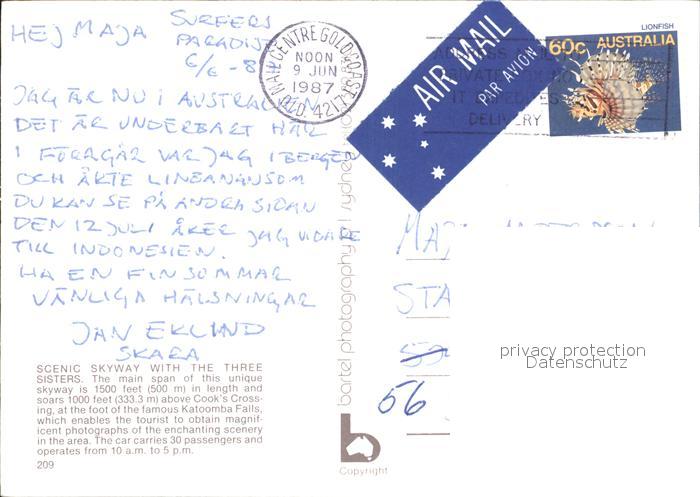 HEJ MAJA
SURFERS
PARADISE
6/6 -87
JAG ÄR NU I AUSTRALIEN
DET ÄR UNDERBART HÄR
I FÖRRGÅR VAR JAG I BERGEN
OCH ÅKTE LINBANAN SOM
DU KAN SE PÅ ANDRA SIDAN
DEN 12 JULI ÅKER JAG VIDARE
TILL INDONESIEN.
HA EN FIN SOMMAR
VÄNLIGA HÄLSNINGAR
JAN EKLUND
SKARA
SCENIC SKYWAY WITH THE THREE
SISTERS. The main span of this unique
skyway is 1500 feet (500 m) in length and
soars 1000 feet (333.3 m) above Cook's Cross-
ing, at the foot of the famous Katoomba Falls,
which enables the tourist to obtain magnif-
icent photographs of the enchanting scenery
in the area. The car carries 30 passengers and
operates from 10 a.m. to 5 p.m.
209
bartel photography
sydney
b
Copyright
MAIL CENTRE GOLD COAST
NOON
9 JUN
1987
QLD. 4217
AIR MAIL
PAR AVION
DELIVERY
LIONFISH
60c AUSTRALIA
STA
56
privacy protection
Datenschutz